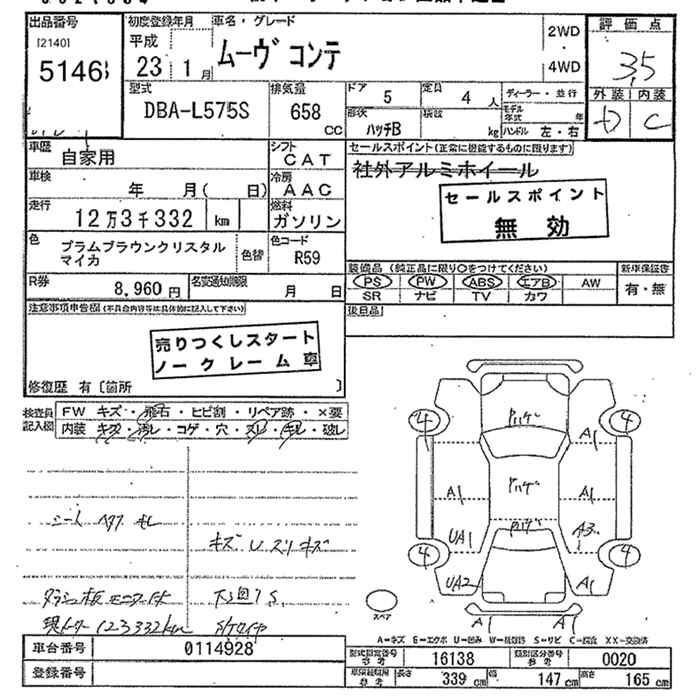 出品番号
[2140]
5146
初度登録年月
平成
23年 1月
車名・グレード
ムーヴ コンテ
2WD
4WD
評価点
3.5
外装 内装
D C
型式
DBA-L575S
排気量
658 CC
ドア 5
定員 4 人
形状 ハッチB
積載 kg
ディーラー・並行
モデル年式 年
ハンドル 左・右
車歴
自家用
シフト
CAT
車検
年 月( 日)
冷房
AAC
走行
12万3千332 km
燃料
ガソリン
色
プラムブラウンクリスタル
マイカ
色替
色コード
R59
R券
8,960円
名変通知期限
月 日
セールスポイント(正常に機能するものに限ります)
社外アルミホイール
セールスポイント
無効
装備品 (純正品に限り○をつけてください)
PS PW ABS エアB AW
SR ナビ TV カワ
新車保証書
有・無
後日品
注意事項申告欄(不具合内容等は具体的に記入して下さい)
売りつくしスタート
ノークレーム車
修復歴 有〔箇所 〕
検査員記入欄
FW キズ・飛石・ヒビ割・リペア跡・×要
内装 キズ・汚レ・コゲ・穴・スレ・キレ・破レ
シート ヘタリ キレ
キズ U スリキズ
下廻り S
現メーター 123332km
4 4
A1
A1 A1
UA1 A3
4 4
UA2 A1
A1 A1
スペア
A=キズ E=エクボ U=凹ミ W=補修跡 S=サビ C=腐食 XX=交換済
車台番号
0114928
登録番号
型式指定番号 参考
16138
類別区分番号 参考
0020
車検証記載 参考
長さ 339 cm
幅 147 cm
高さ 165 cm